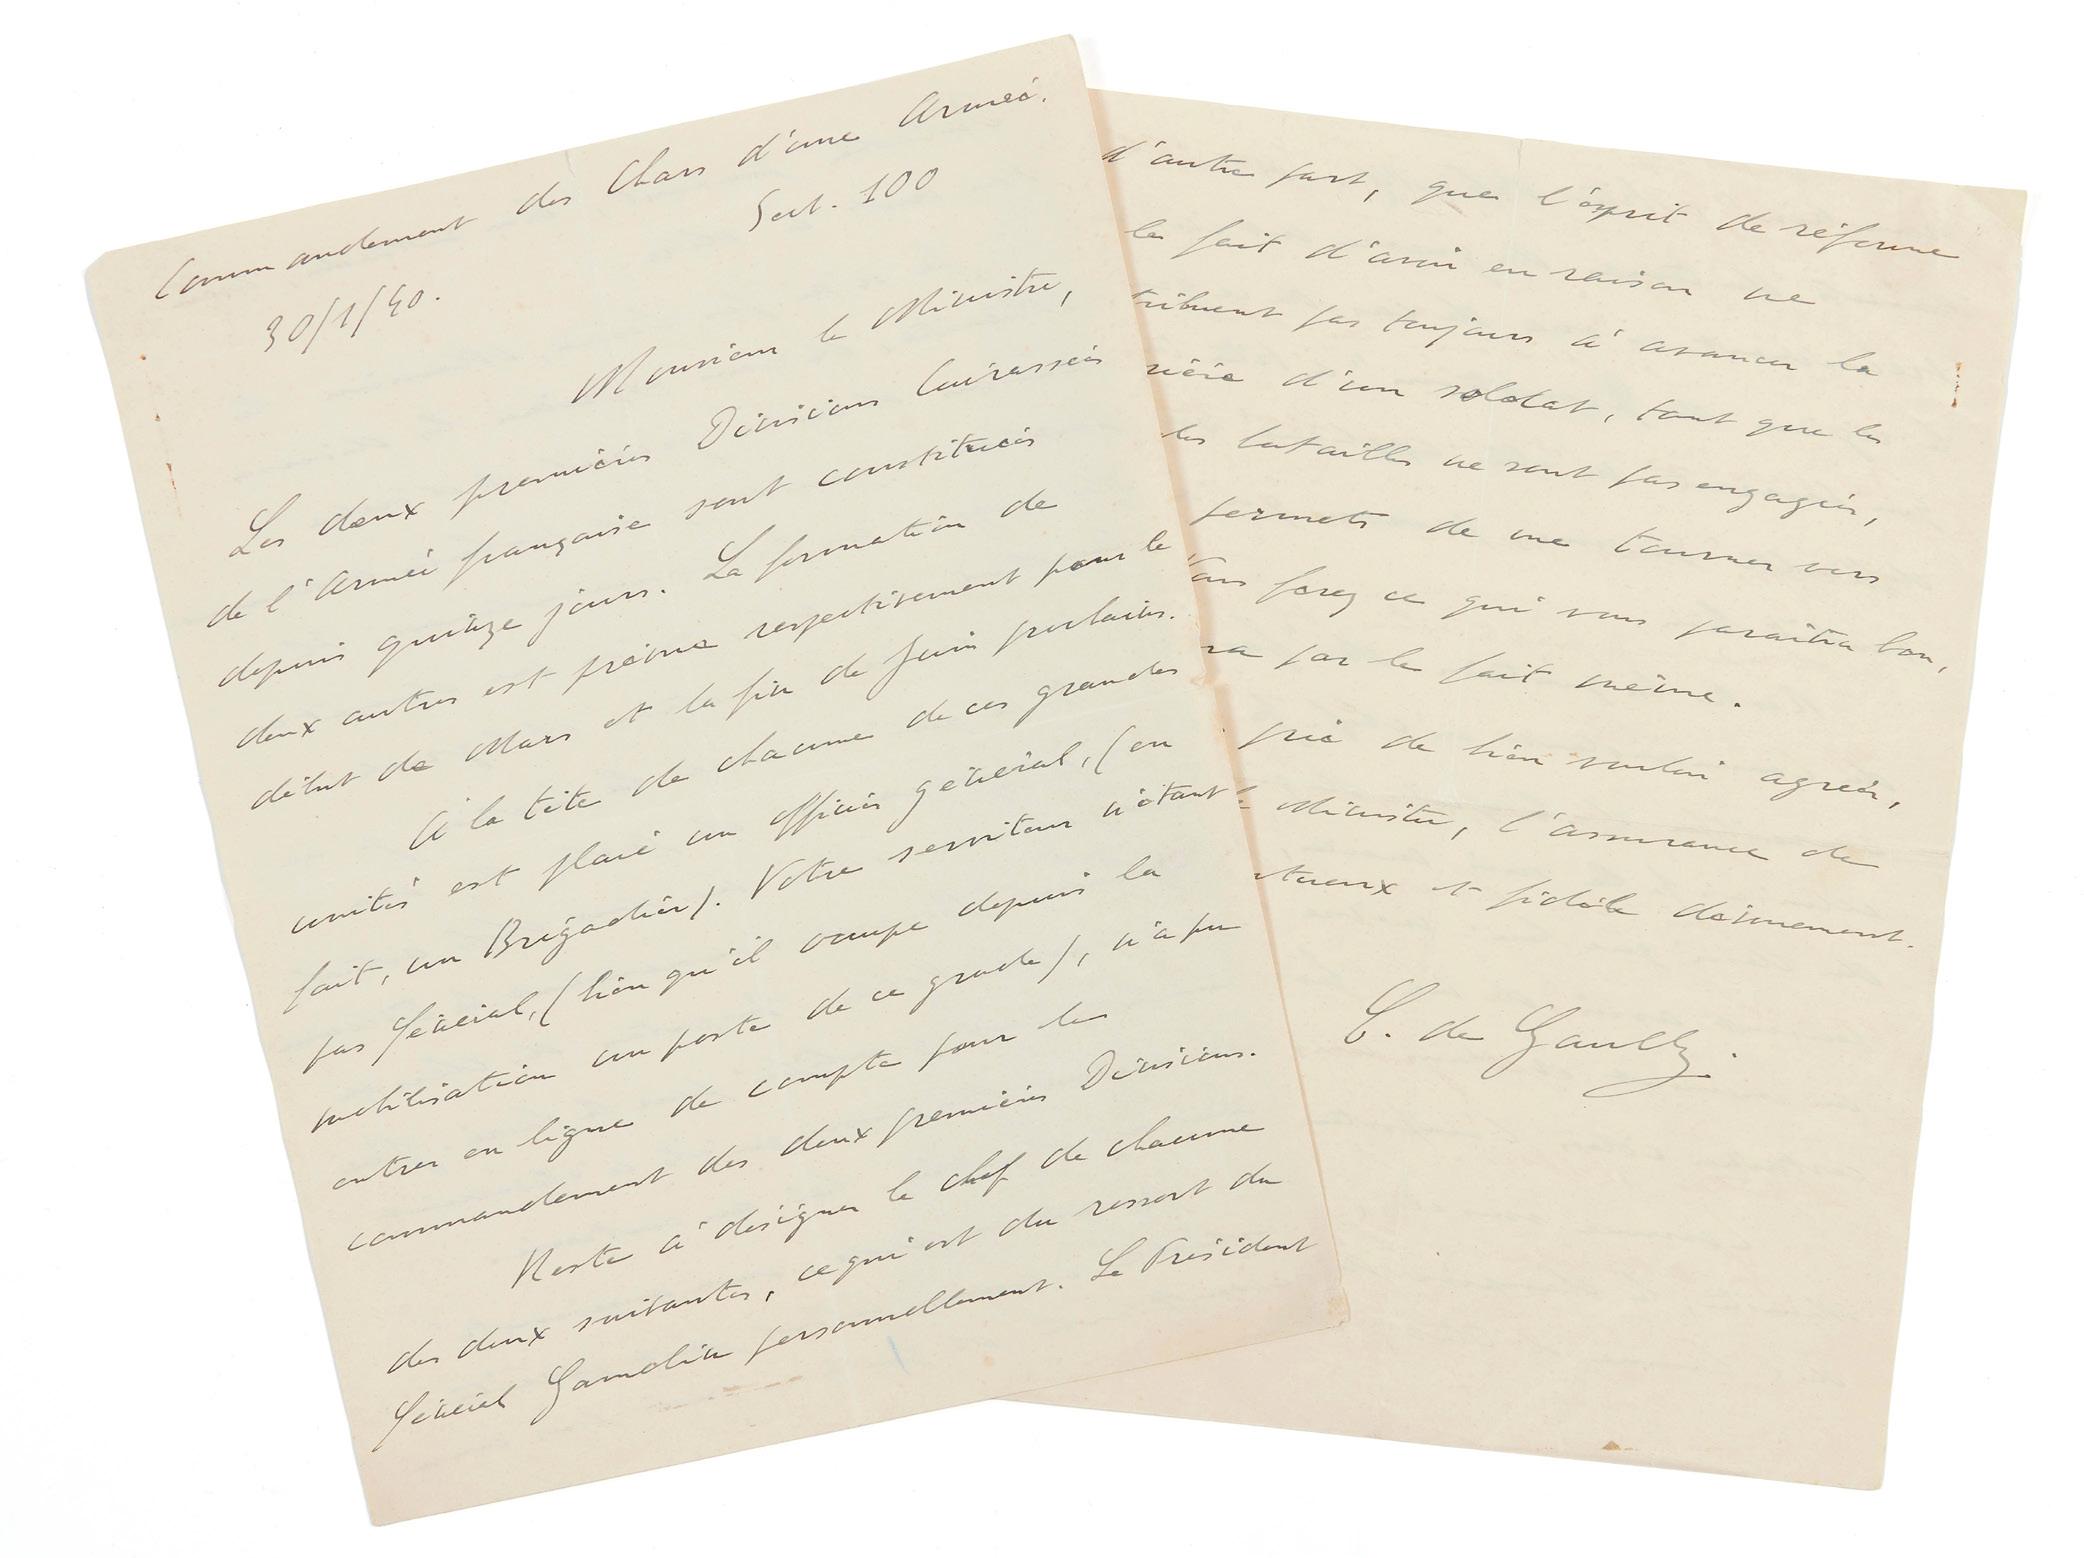 Commandement des Chars d'une Armée.
Sect. 100
30/1/40.
Monsieur le Ministre,
Les deux premières Divisions Cuirassées
de l'Armée française sont constituées
depuis quinze jours. La formation de
deux autres est prévue respectivement pour le
début de Mars et la fin de Juin prochains.
A la tête de chacune de ces grandes
unités est placé un officier général, (en
fait, un Brigadier). Votre serviteur n'étant
pas Général, (bien qu'il occupe depuis la
mobilisation un poste de ce grade), n'a pu
entrer en ligne de compte pour le
commandement des deux premières Divisions.
Reste à désigner le chef de chacune
des deux suivantes, ce qui est du ressort du
Général Gamelin personnellement. Le Président
d'autre part, que l'esprit de réforme
le fait d'avoir eu raison ne
tribuent pas toujours à avancer la
rière d'un soldat, tant que les
des batailles ne sont pas engagées,
permets de me tourner vers
Vous ferez ce qui vous paraîtra bon,
ra par le fait même.
prie de bien vouloir agréer,
Ministre, l'assurance de
tueux et fidèle dévouement.
C. de Gaulle.